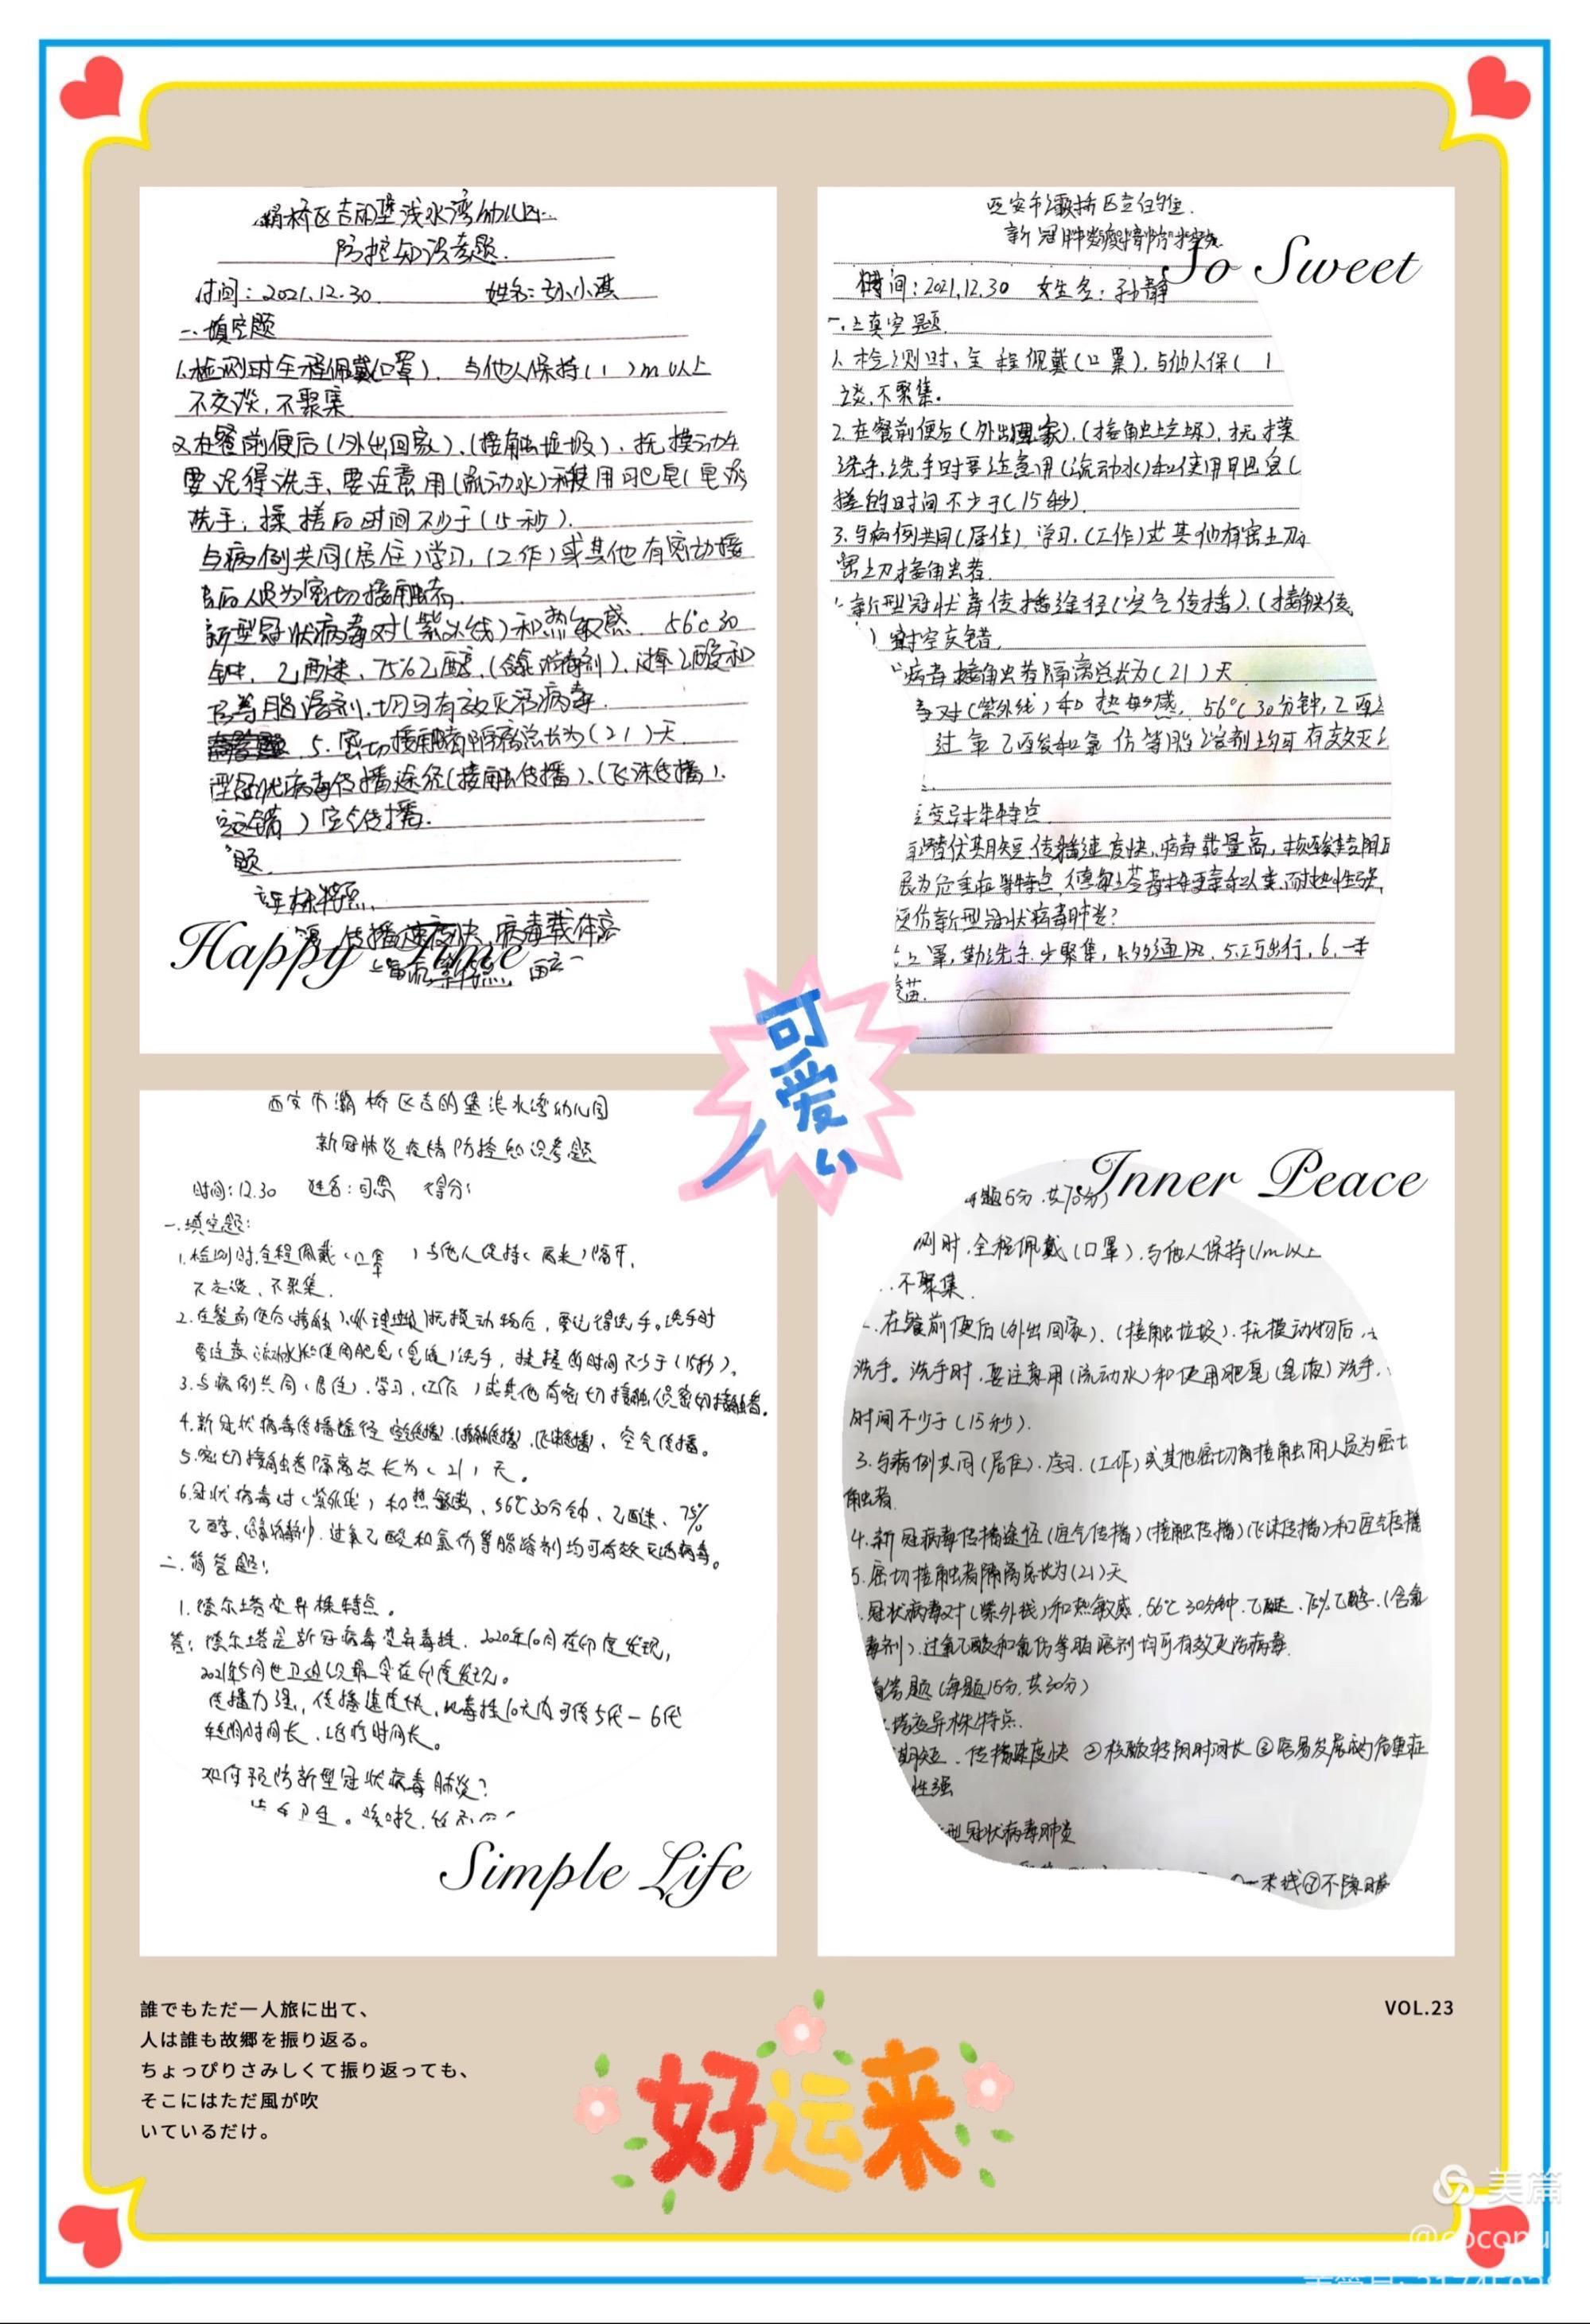 灞桥区吉的堡浅水湾幼儿园
防控知识考题.
时间:2021.12.30 姓名:孙小淇
一.填空题
1.检测时全程佩戴(口罩).与他人保持(1)m以上
不交谈,不聚集
2.在餐前便后(外出回家).(接触垃圾).抚摸动物
要记得洗手、要注意用(流动水)和使用肥皂(皂液
洗手;揉搓的时间不少于(15秒).
与病例共同(居住)学习,(工作)或其他有密切接
密切接触者.
新型冠状病毒对(紫外线)和热敏感 56℃30
钟.乙醚、75%乙醇,(含氯消毒剂).过氧乙酸和
等脂溶剂.均可有效灭活病毒.
5.密切接触者隔离总长为(21)天
型冠状病毒传播途径(接触传播)、(飞沫传播).
)空气传播.
题.
变异株特点.
传播速度快,病毒载体高
Happy Time
新冠肺炎疫情防控
So Sweet
时间:2021.12.30 姓名:孙静
一.填空题.
1.检测时、全程佩戴(口罩).与他人保( 1
谈.不聚集.
2.在餐前便后(外出回家).(接触垃圾).抚摸
洗手.洗手时要注意用(流动水)和使用肥皂(
搓的时间不少于(15秒)
3.与病例共同(居住) 学习.(工作)或其他有密切
密切接触者.
新型冠状毒传播途径(空气传播).(接触传
病毒接触者隔离总长为(21)天
毒对(紫外线)和热敏感.56℃30分钟,乙醚
过氧乙酸和氯仿等脂溶剂均可有效灭
变异株特点
潜伏期短,传播速度快、病毒载量高,核酸转阴
展为危重症等特点
预防新型冠状病毒肺炎?
口罩,勤洗手.少聚集,4多通风.5.巧出行,6.一米
苗.
可爱
西安市灞桥区吉的堡浅水湾幼儿园
新冠肺炎疫情防控知识考题
时间:12.30 姓名:司思 得分:
一.填空题:
1.检测时,全程佩戴(口罩)与他人保持(两米)隔开,
不交谈、不聚集.
2.在餐前便后(接触)、(处理垃圾)抚摸动物后,要记得洗手。洗手时
要注意(流动水)和使用肥皂(皂液)洗手,揉搓的时间不少于(15秒)。
3.与病例共同(居住).学习,(工作)或其他有密切接触人员密切接触者.
4.新冠状病毒传播途径 空气传播).(接触传播).(飞沫传播)、空气传播。
5.密切接触者隔离总长为(21)天。
6.冠状病毒对(紫外线)和热敏感、56℃30分钟、乙醚、75%
乙醇、(含氯消毒剂).过氧乙酸和氯仿等脂溶剂均可有效灭活病毒。
二.简答题:
1.德尔塔变异株特点。
答:德尔塔是新冠病毒变异毒株.2020年10月在印度发现,
2021年5月世卫组织最早在印度发现。
传播力强,传播速度快,此毒株10天内可传5代-6代
转阴时间长,治疗时间长。
如何预防新型冠状病毒肺炎?
Simple Life
Inner Peace
题5分.共70分)
测时.全程佩戴(口罩).与他人保持(1)m以上
不聚集.
在餐前便后(外出回家).(接触垃圾).抚摸动物后.
洗手。洗手时.要注意用(流动水)和使用肥皂(皂液)洗手.
时间不少于(15秒).
3.与病例共同(居住).学习.(工作)或其他密切接触人员为密切
触者.
4.新冠病毒传播途径(空气传播)(接触传播)(飞沫传播)和空气传播
5.密切接触者隔离总长为(21)天
冠状病毒对(紫外线)和热敏感.56℃30分钟.乙醚.75%乙醇.(含氯
毒剂).过氧乙酸和氯仿等脂溶剂均可有效灭活病毒.
简答题(每题15分.共30分)
塔变异株特点.
期短.传播速度快 ②核酸转阴时间长 ③容易发展成为危重症
性强
型冠状病毒肺炎
一米线⑦不隐瞒
誰でもただ一人旅に出て、
人は誰も故郷を振り返る。
ちょっぴりさみしくて振り返っても、
そこにはただ風が吹
いているだけ。
VOL.23
好运来
美篇